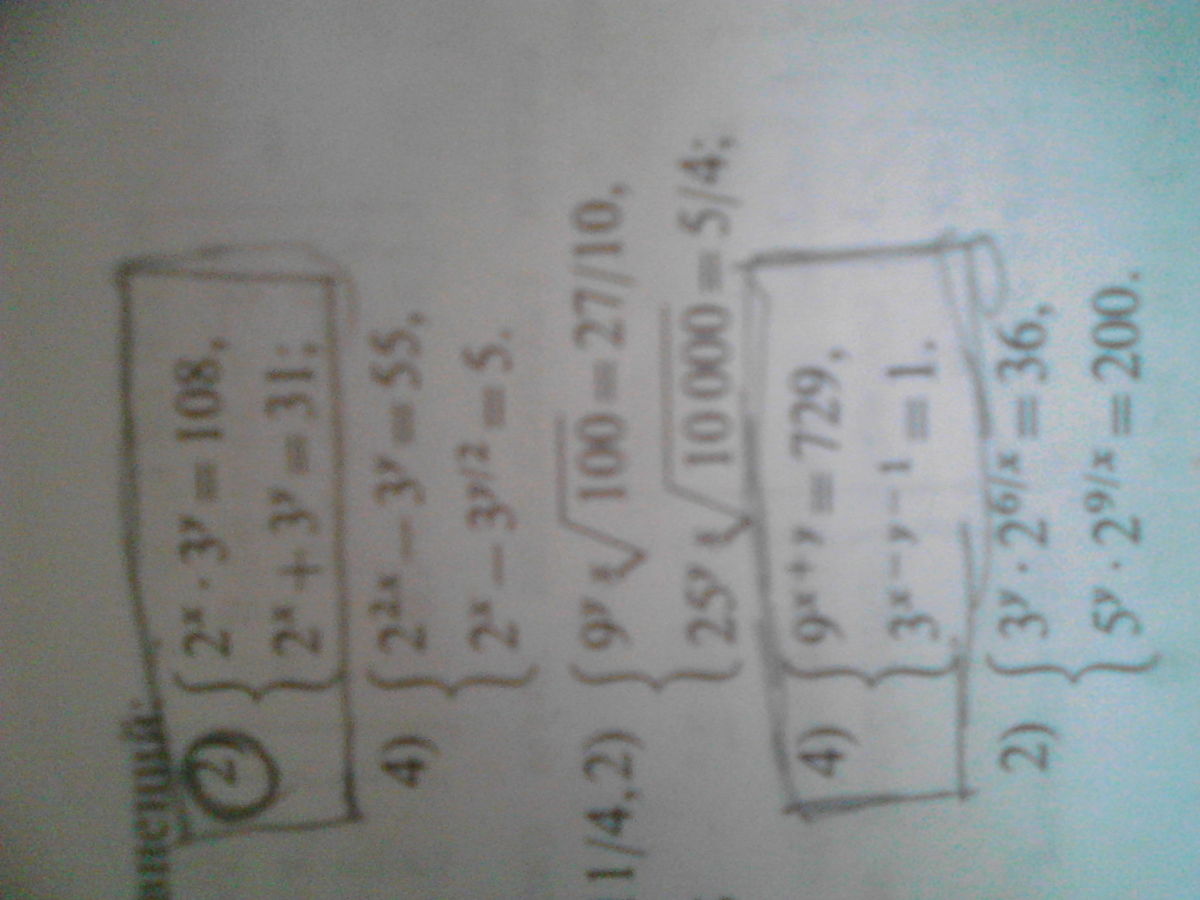 2) { 2ˣ · 3ʸ = 108,
2ˣ + 3ʸ = 31;
4) { 2²ˣ − 3ʸ = 55,
2ˣ − 3ʸᐟ² = 5.
1/4,2) { 9ʸ √100 = 27/10,
25ʸ √10 000 = 5/4;
4) { 9ˣ⁺ʸ = 729,
3ˣ⁻ʸ⁻¹ = 1.
2) { 3ʸ · 2⁶ᐟˣ = 36,
5ʸ · 2⁹ᐟˣ = 200.